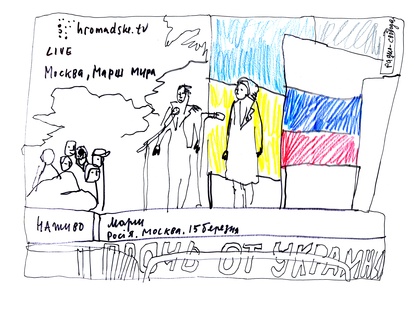 hromadske.tv
LIVE
Москва, Марш мира
НАЖИВО
Марш
Росія. Москва. 15 березня
ПРОЧЬ ОТ УКРАИНЫ